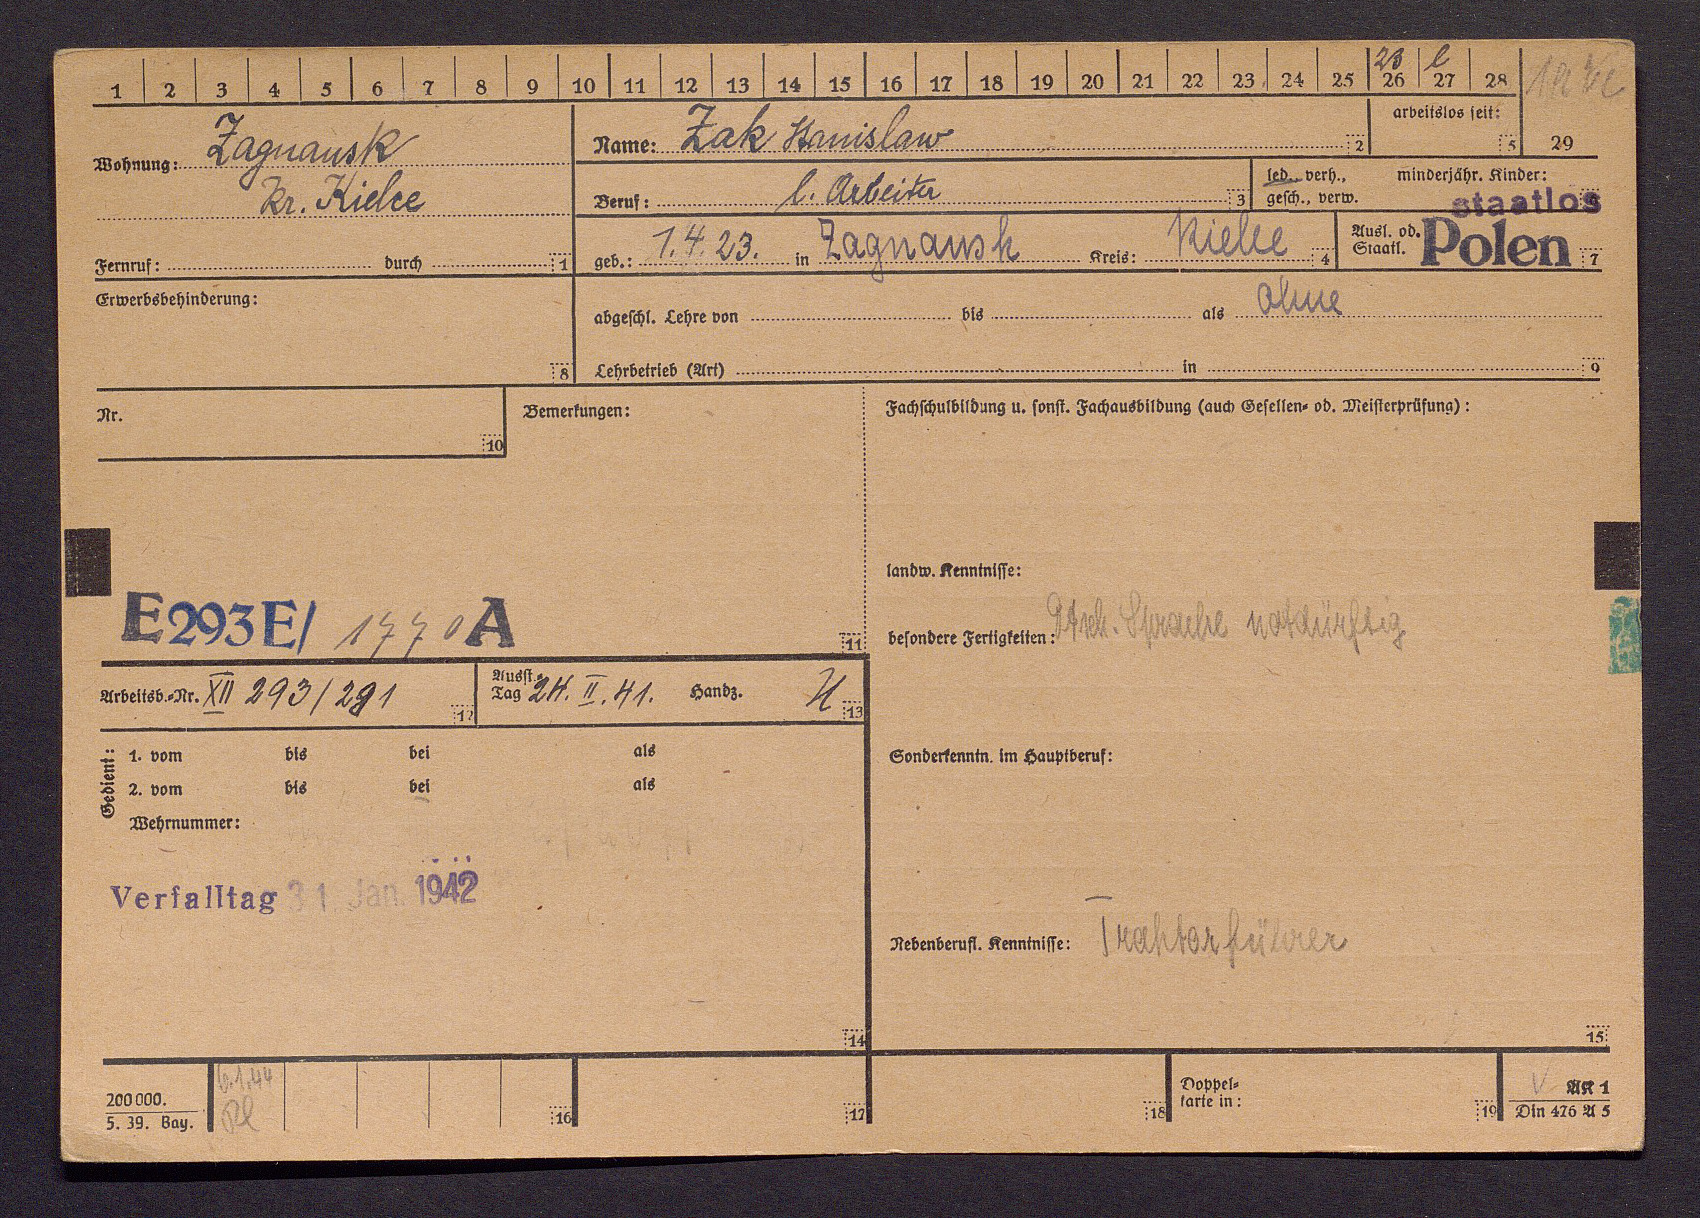 1 2 3 4 5 6 7 8 9 10 11 12 13 14 15 16 17 18 19 20 21 22 23 24 25 26 27 28 29
23 l
Wohnung: Zagnansk
Kr. Kielce
Fernruf: durch 1
Name: Zak Stanislaw 2
arbeitslos seit: 5
Beruf: l. Arbeiter 3
led., verh., gesch., verw.
minderjähr. Kinder:
geb.: 1.4.23. in Zagnansk Kreis: Kielce 4
staatlos
Ausl. od. Staatl. Polen 7
Erwerbsbehinderung: 8
abgeschl. Lehre von bis als ohne
Lehrbetrieb (Art) in 9
Nr. 10
Bemerkungen:
Fachschulbildung u. sonst. Fachausbildung (auch Gesellen- od. Meisterprüfung):
landw. Kenntnisse:
E293E/ 1770 A 11
besondere Fertigkeiten: Dtsch. Sprache notdürftig
Arbeitsb.-Nr. XII 293/291 12
Ausst.-Tag 24. II. 41. Handz. 13
Gedient:
1. vom bis bei als
2. vom bis bei als
Wehrnummer:
Sonderkenntn. im Hauptberuf:
Verfalltag 31. Jan. 1942
Nebenberufl. Kenntnisse: Traktorführer
14
15
200000.
5. 39. Bay.
6.1.44
16
17
18
Doppelkarte in: 19
AK 1
Din 476 A 5